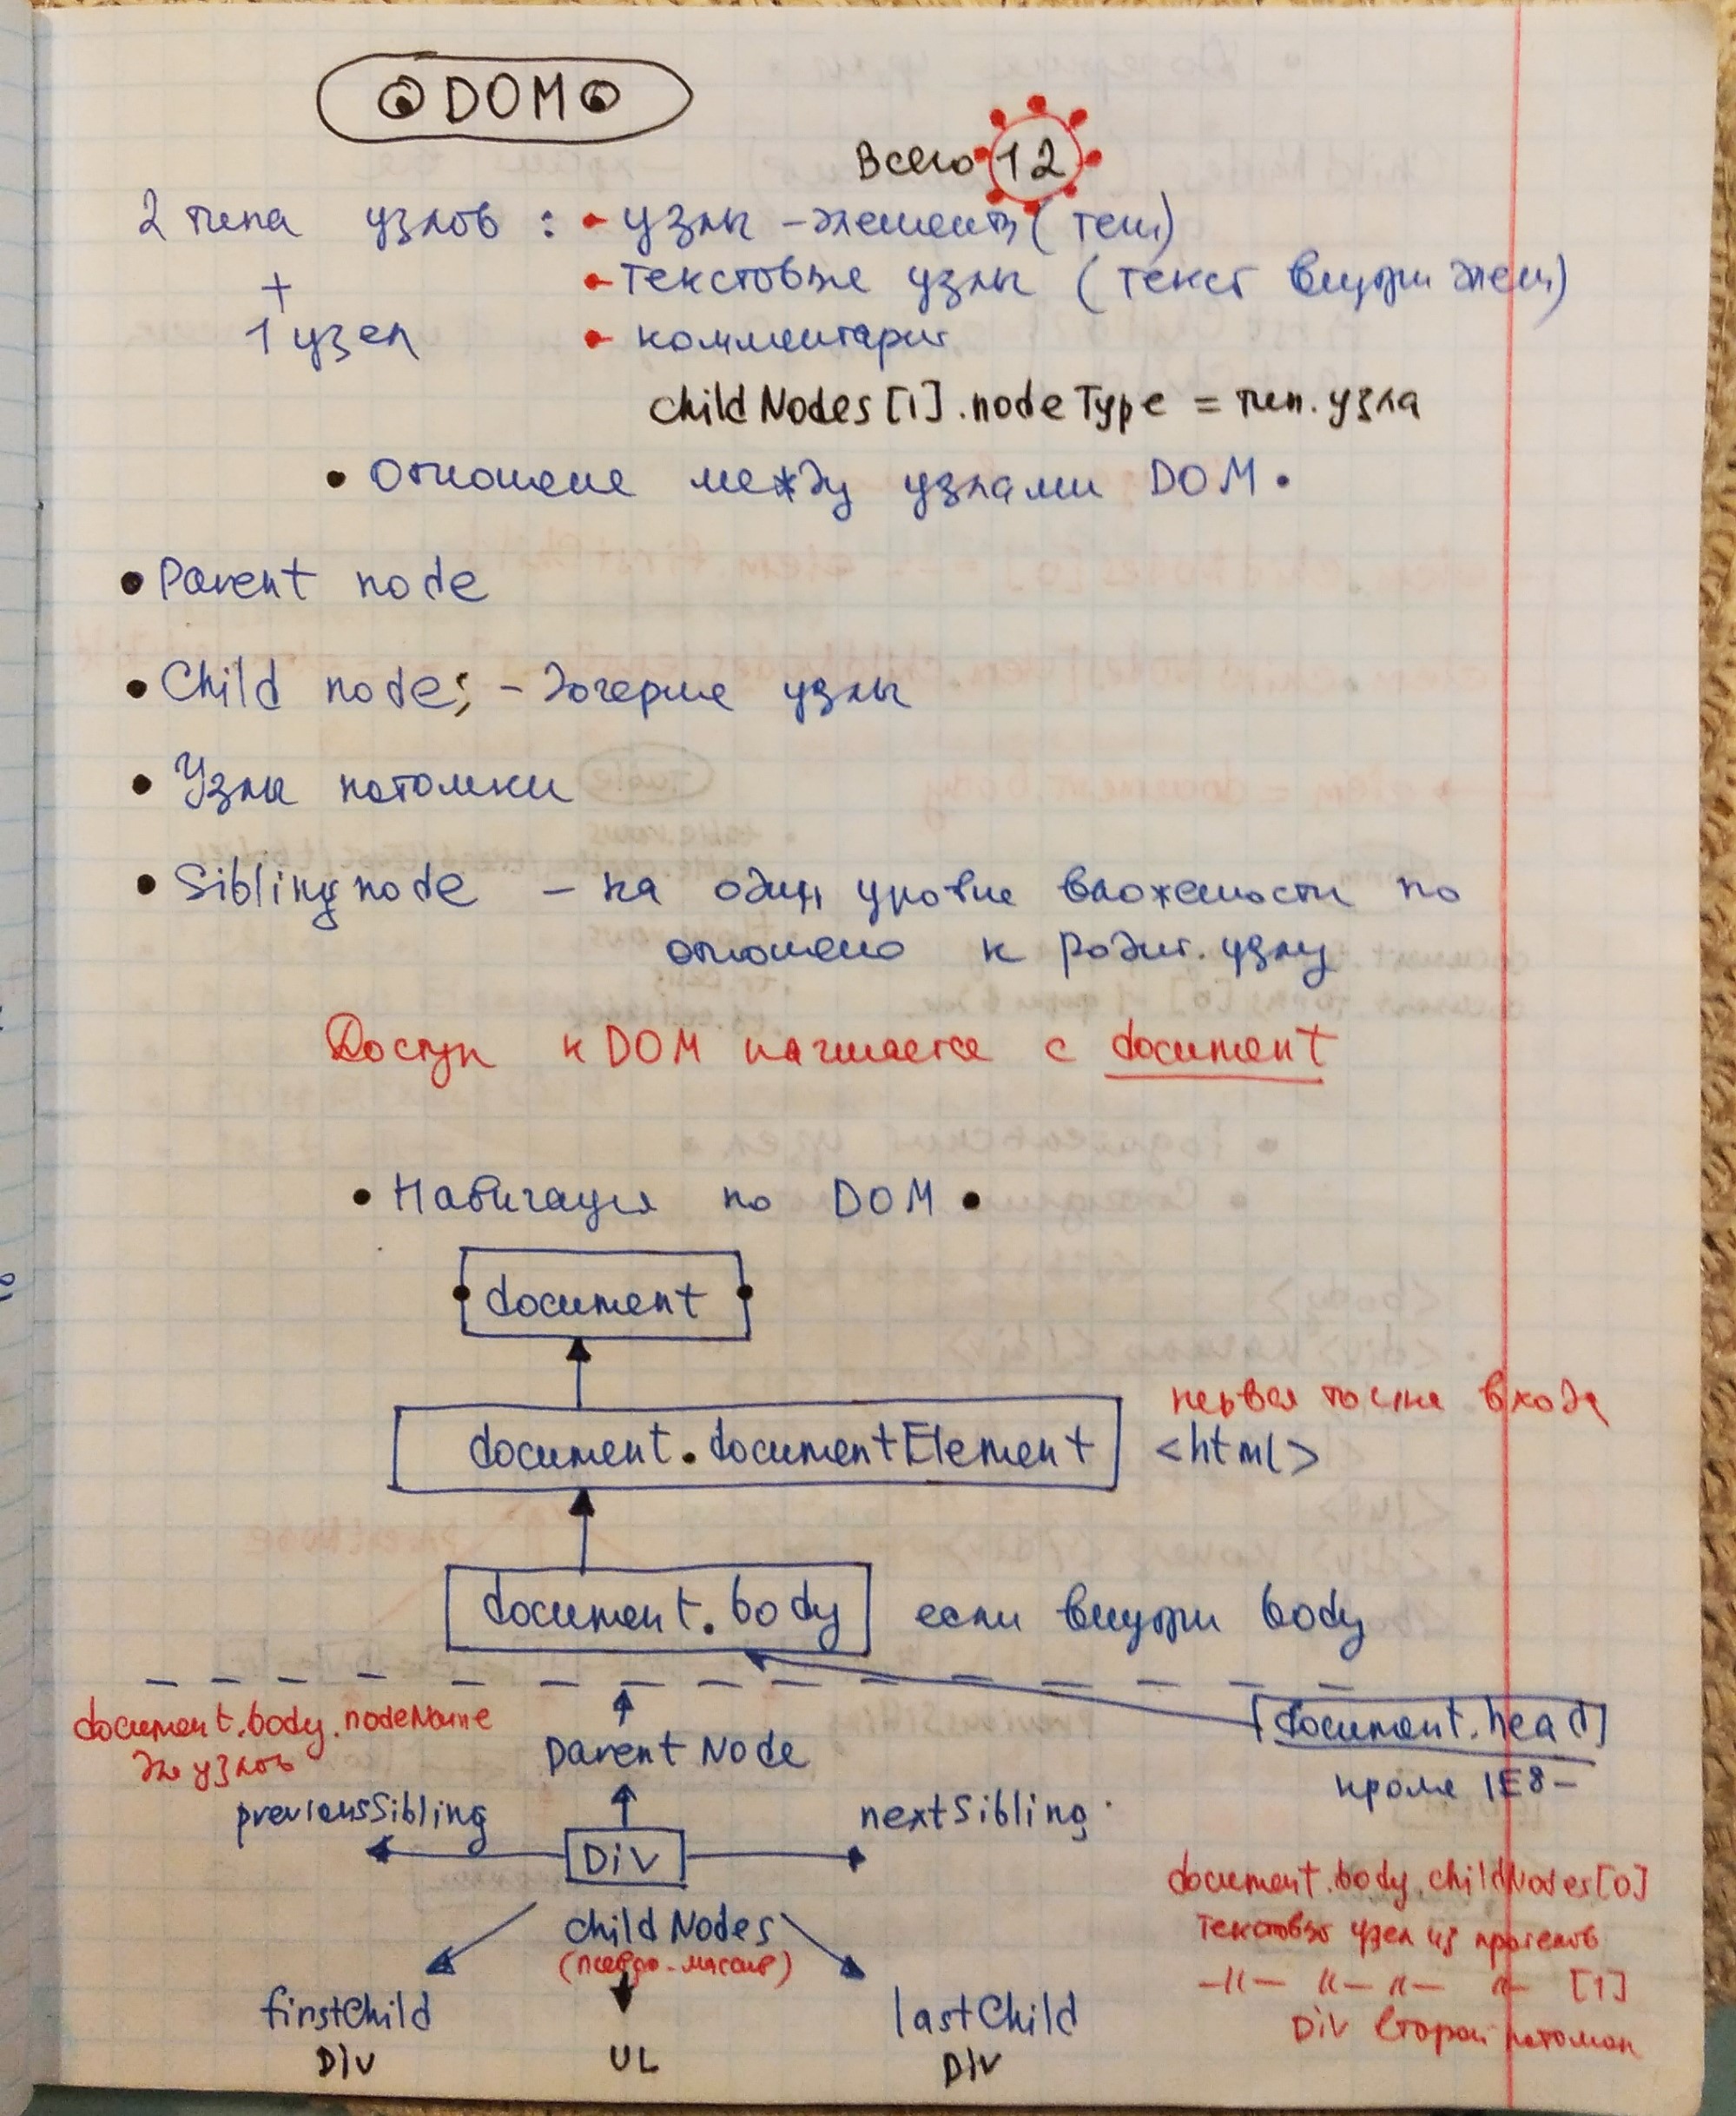 DOM
Всего 12
2 типа узлов : • узлы - элементы ( теги)
+ • текстовые узлы ( текст внутри элем)
1 узел • комментарии
childNodes[1].nodeType = тип. узла
• Отношене между узлами DOM •
• Parent node
• Child node; - дочерние узлы
• Узлы потомки
• Sibling node - на одн уровне вложености по
отношено к родит. узлу
Доступ к DOM начинается с document
• Навигация по DOM •
document
первая точка входа
document.documentElement <html>
document.body если внутри body
document.body.nodeName
для узлов
document.head
кроме IE8-
parentNode
previousSibling
nextSibling
Div
childNodes
(псевдо-массив)
firstChild
Div
UL
lastChild
Div
document.body.childNodes[0]
текстовый узел из пробелов
-"- "- "- "- [1]
Div второй потомок